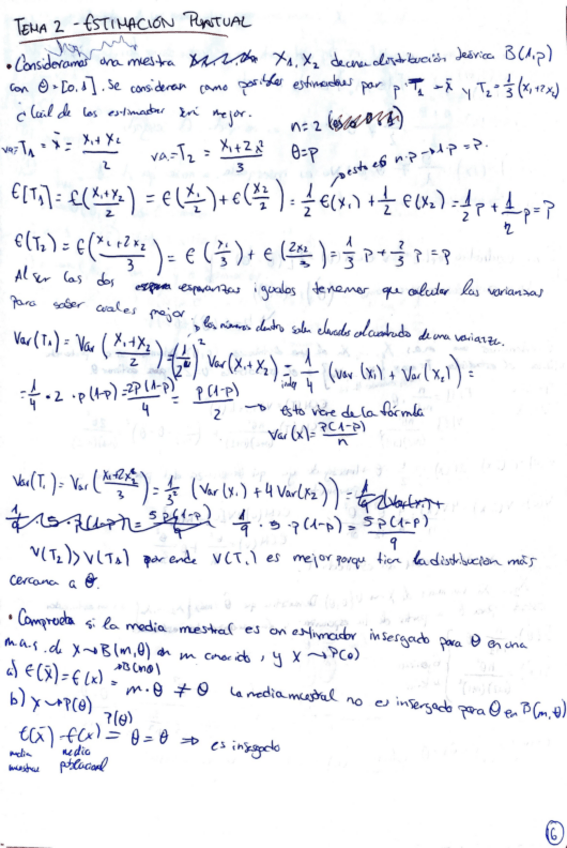 TEMA 2 - ESTIMACIÓN PUNTUAL
• Consideramos una muestra X₁, X₂ de una distribución teórica B(1,p)
con Θ=[0,1]. Se consideran como posibles estimadores para p T₁ = x̄ y T₂ = 1/3 (x₁+2x₂)
¿Cuál de los estimadores es mejor.
n=2
va=T₁ = x̄ = (x₁+x₂)/2 va=T₂ = (x₁+2x₂)/3 Θ=p → esto es n·p → 1·p = p.
E[T₁] = E((x₁+x₂)/2) = E(x₁/2) + E(x₂/2) = 1/2 E(x₁) + 1/2 E(x₂) = 1/2 p + 1/2 p = p
E(T₂) = E((x₁+2x₂)/3) = E(x₁/3) + E(2x₂/3) = 1/3 p + 2/3 p = p
Al ser las dos esperanzas iguales tenemos que calcular las varianzas
para saber cual es mejor
→ los números dentro salen elevados al cuadrado de una varianza.
Var(T₁) = Var((x₁+x₂)/2) = (1/2)² Var(x₁+x₂) = indep 1/4 (Var(x₁) + Var(x₂)) =
= 1/4 · 2 · p(1-p) = 2p(1-p)/4 = p(1-p)/2 → Esto viene de la fórmula
Var(x) = p(1-p)/n
Var(T₂) = Var((x₁+2x₂)/3) = 1/3² (Var(x₁) + 4 Var(x₂)) =
1/9 · 5 · p(1-p) = 5p(1-p)/9
V(T₂) > V(T₁) por ende V(T₁) es mejor porque tien la distribución más
cercana a θ.
• Comprueba si la media muestral es un estimador insesgado para θ en una
m.a.s. de X→B(m,θ) en m conocido, y X→P(θ)
a) E(x̄) = E(x) = →B(m,θ) m·θ ≠ θ La media muestral no es insesgado para θ en B(m,θ)
b) X→P(θ)
E(x̄) = E(x) = P(θ) θ = θ ⇒ es insesgado
media media
muestral poblacional
6